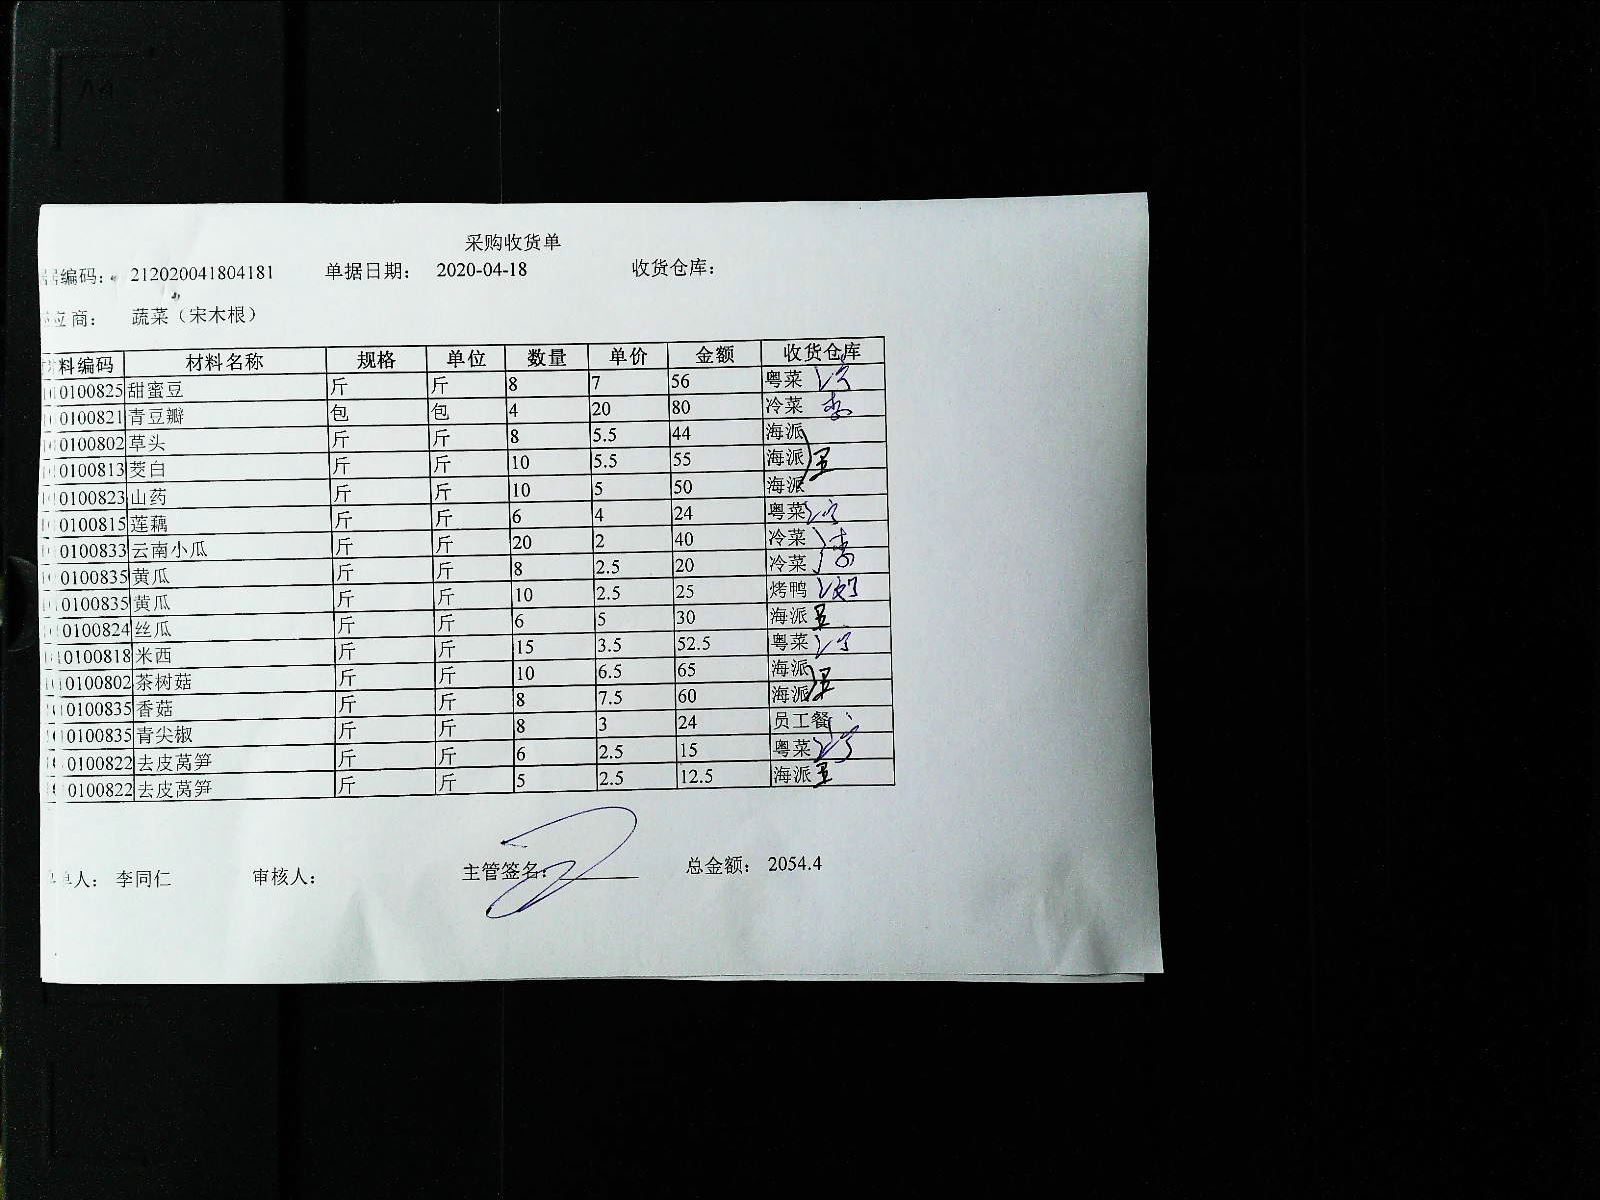 采购收货单
编码： 212020041804181 单据日期： 2020-04-18 收货仓库：
应商： 蔬菜（宋木根）
料编码 材料名称 规格 单位 数量 单价 金额 收货仓库
0100825 甜蜜豆 斤 斤 8 7 56 粤菜
0100821 青豆瓣 包 包 4 20 80 冷菜
0100802 草头 斤 斤 8 5.5 44 海派
0100813 茭白 斤 斤 10 5.5 55 海派
0100823 山药 斤 斤 10 5 50 海派
0100815 莲藕 斤 斤 6 4 24 粤菜
0100833 云南小瓜 斤 斤 20 2 40 冷菜
0100835 黄瓜 斤 斤 8 2.5 20 冷菜
0100835 黄瓜 斤 斤 10 2.5 25 烤鸭
0100824 丝瓜 斤 斤 6 5 30 海派
0100818 米西 斤 斤 15 3.5 52.5 粤菜
0100802 茶树菇 斤 斤 10 6.5 65 海派
0100835 香菇 斤 斤 8 7.5 60 海派
0100835 青尖椒 斤 斤 8 3 24 员工餐
0100822 去皮莴笋 斤 斤 6 2.5 15 粤菜
0100822 去皮莴笋 斤 斤 5 2.5 12.5 海派
单人： 李同仁 审核人： 主管签名： 总金额： 2054.4